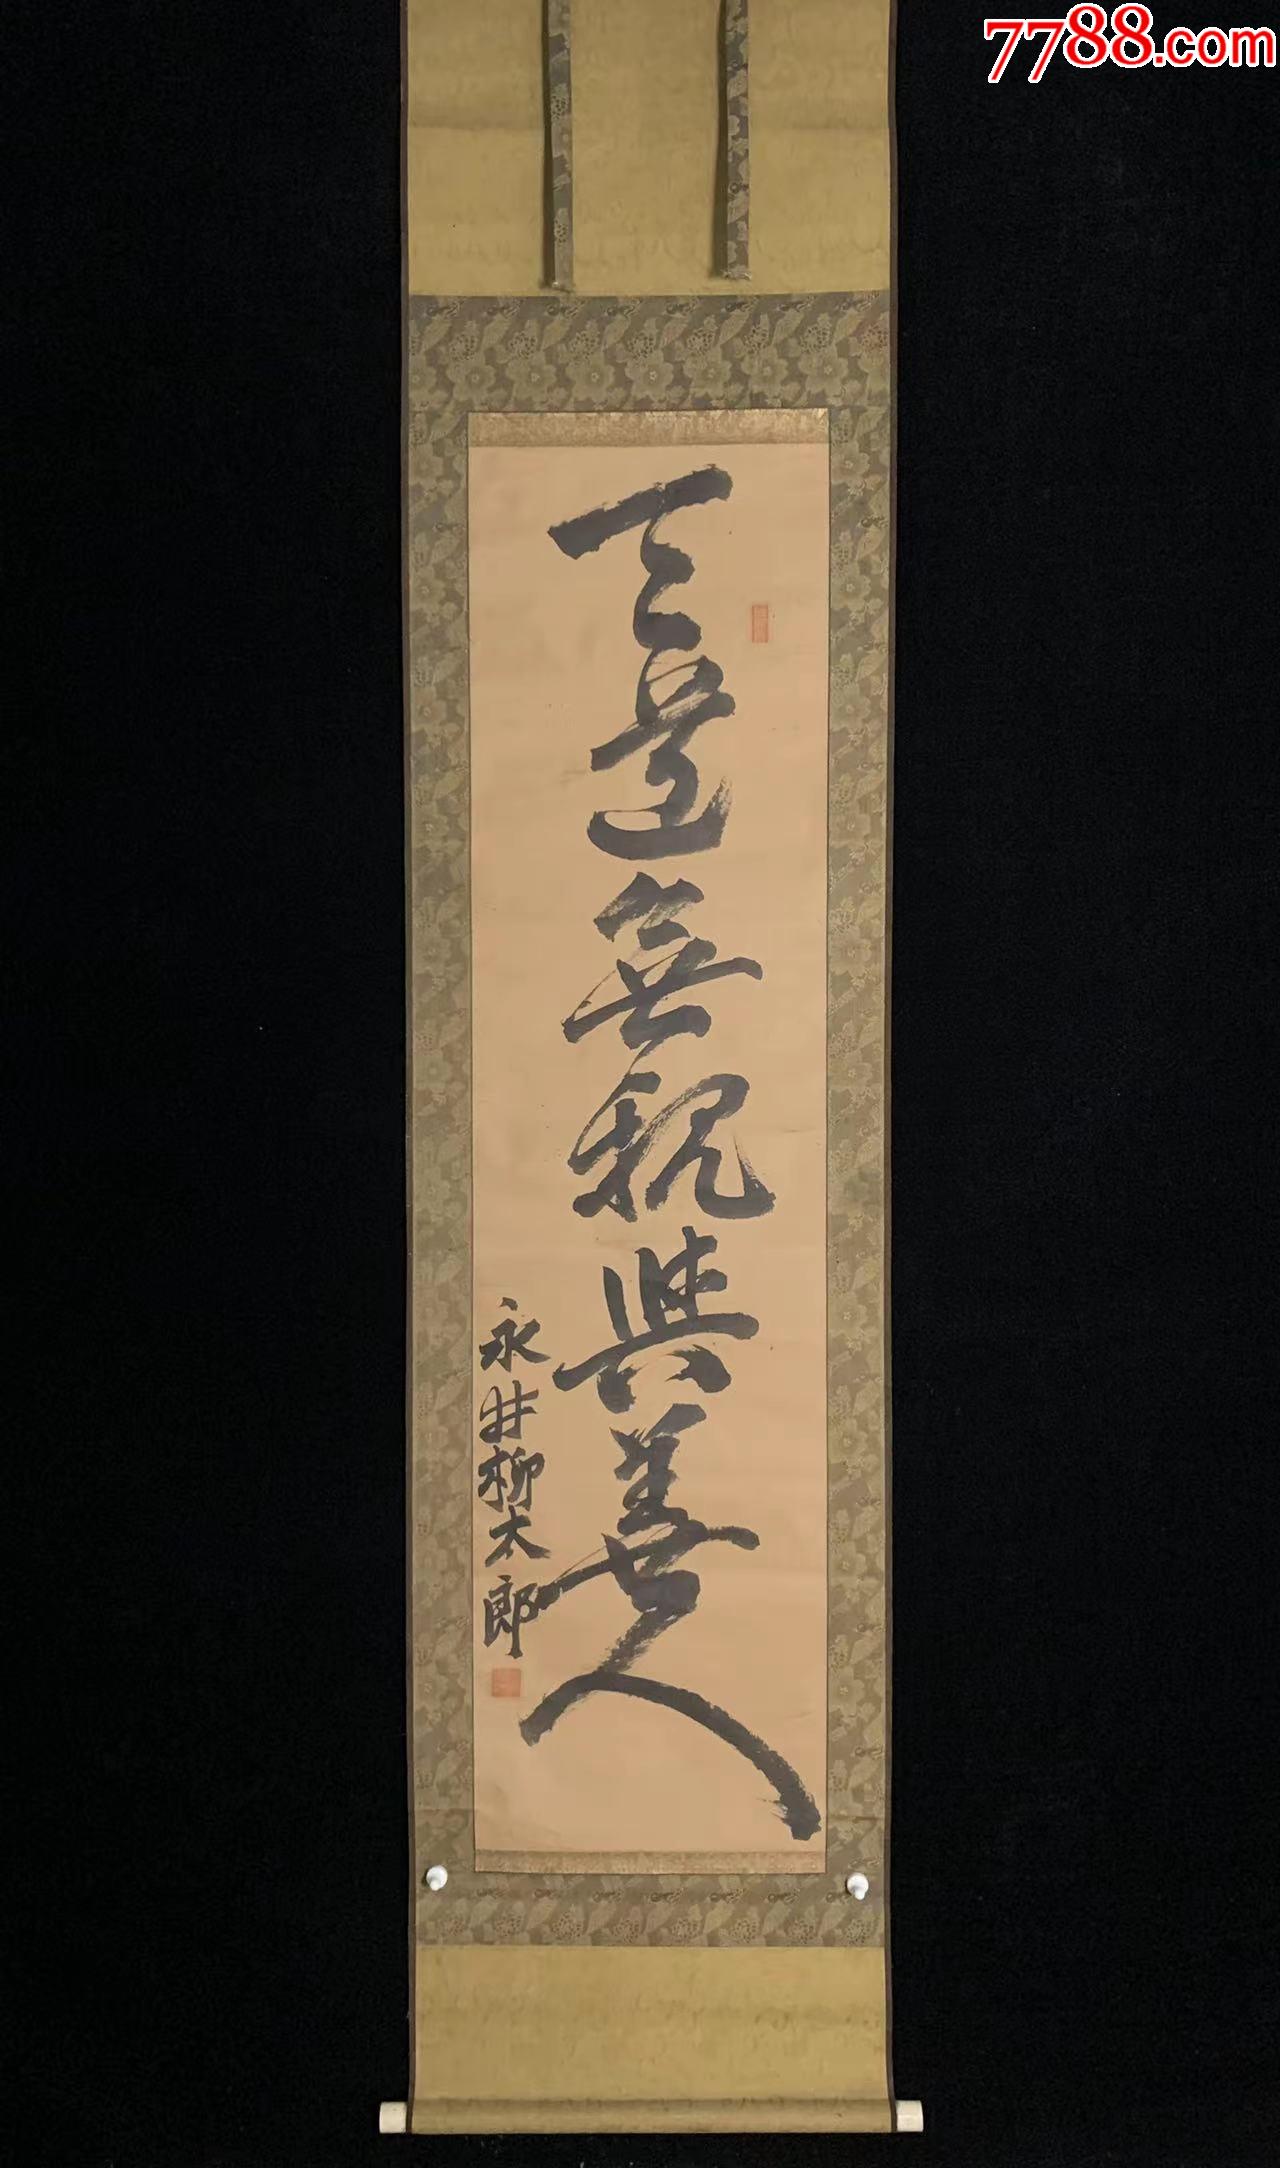 7788.com
天道無親與善人
永井柳太郎